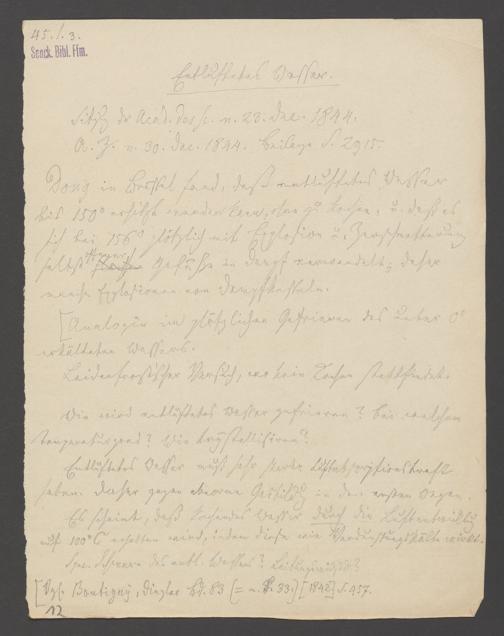 45./.3.
Senck. Bibl. Ffm.
Entlüftetes Wasser.
Sitzg der Acad. des sc. v. 23. Dec. 1844.
A. Z. v. 30. Dec. 1844. Beilage S. 2915.
Dony in Brüssel fand, daß entlüftetes Wasser
bis 150° erhitzt werden kann, ohne zu kochen, u. daß es
sich bei 156° plötzlich mit Explosion u. Zerschmetterung
selbst offener Gefäße in Dampf verwandelt; daher
manche Explosionen von Dampfkesseln.
[Analogie im plötzlichen Gefrieren des unter 0°
erkälteten Wassers.
Leidenfrostischer Versuch, wo kein Kochen stattfindet.
Wie wird entlüftetes Wasser gefrieren? Bei welchem
Temperaturgrad? Wie krystallisiren?
Entlüftetes Wasser muß sehr starke Luftabsorptionskraft
haben. Daher gegen in den ersten Wegen.
Es scheint, daß kochendes Wasser durch die Luftentwicklg
auf 100°C erhalten wird, indem diese wie Verdunstungskälte wirkt.
Spec. Schwere des entl. Wassers?
[Vgl. Boutigny, Dingler Bd. 83 (= n. F. 33.) [1842] S. 457.
12